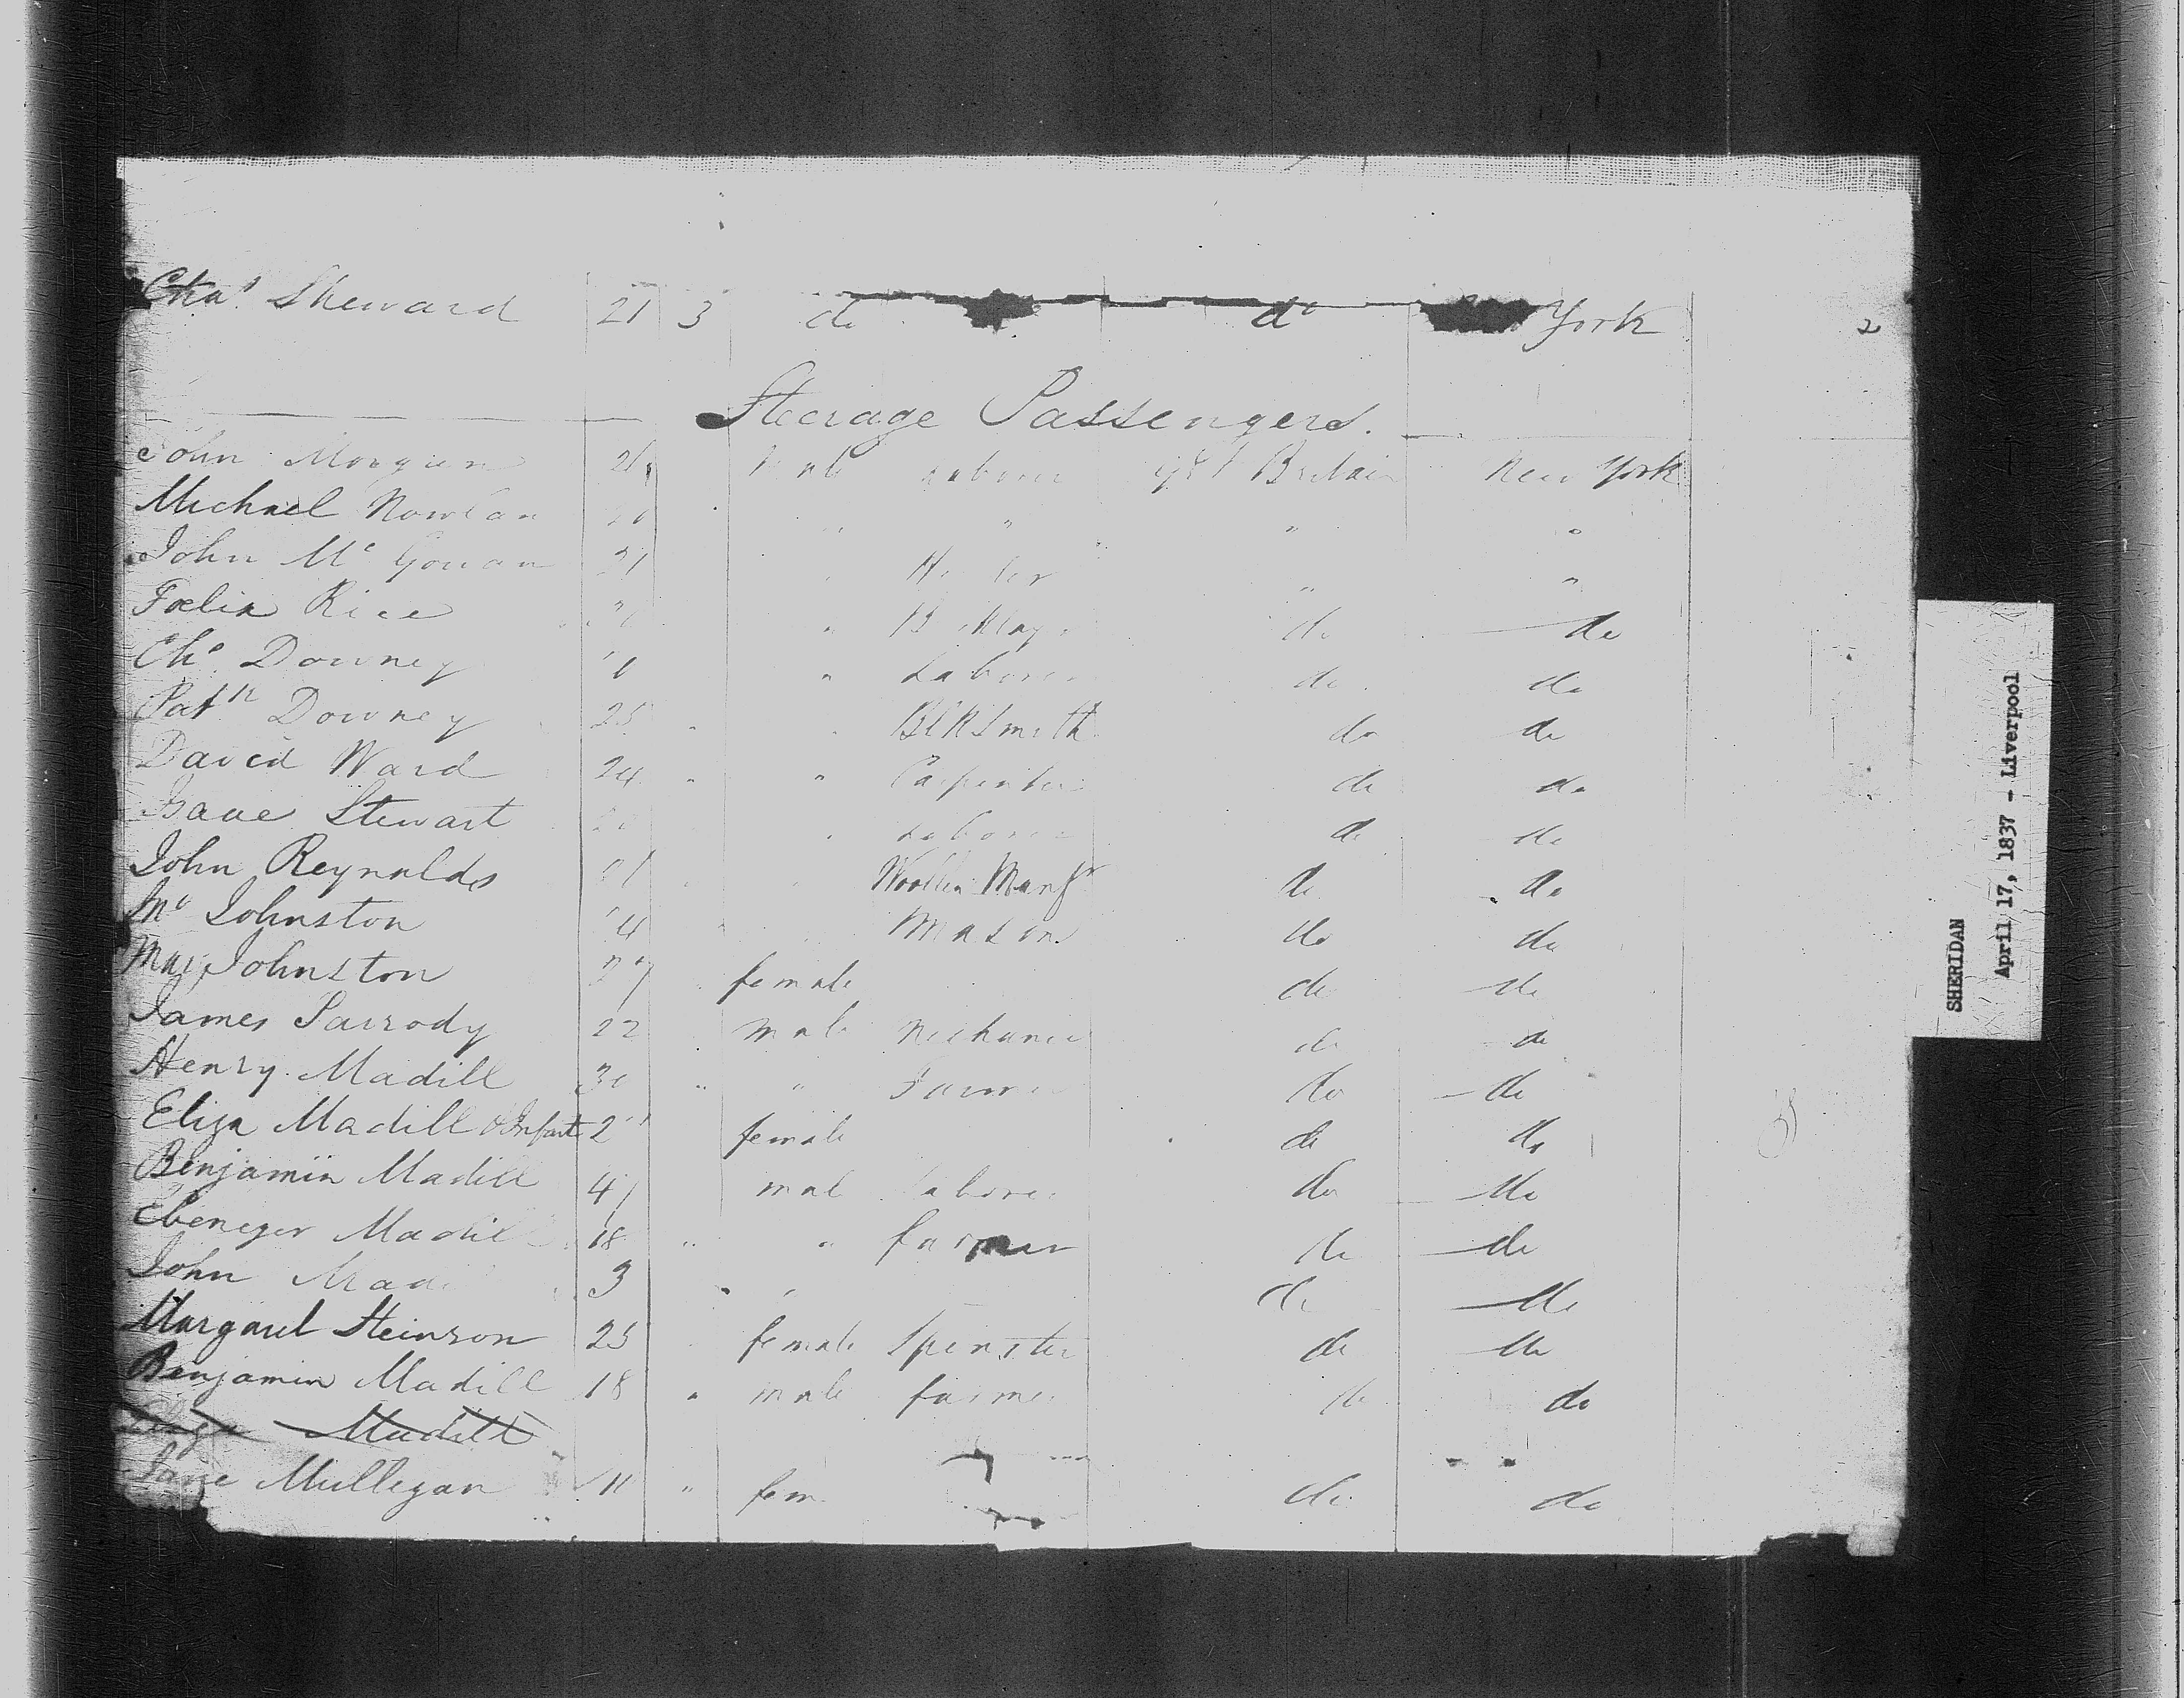 Chas Sheward 21 3 do do York 2
Steerage Passengers.
John Morgan Male Laborer Gt Britain New York
Michael Nowlan " " " "
John Mc Gowan " " "
Foelix Rice " do do
Chs Downey " Laborer do do
Patk Downey 25 " " BlkSmith do do
David Ward 24 " " Carpenter do do
Isaac Stewart " Laborer do do
John Reynolds Woollen Manfr do do
Johnston Mason do do
Johnston female do do
James Parrody 22 " male Mechanic do do
Henry Madill 30 " " Farmer do do
Eliza Madill & Infant female do do
Benjamin Madill male Laborer do do
Ebenezer Madill 18 " " farmer do do
John Madill 3 " " do do
Margaret Steinson 25 " female Spinster do do
Benjamin Madill 18 " male farmer do do
Madill
Jane Mullegan 11 " fem do do
SHERIDAN
April 17, 1837 - Liverpool